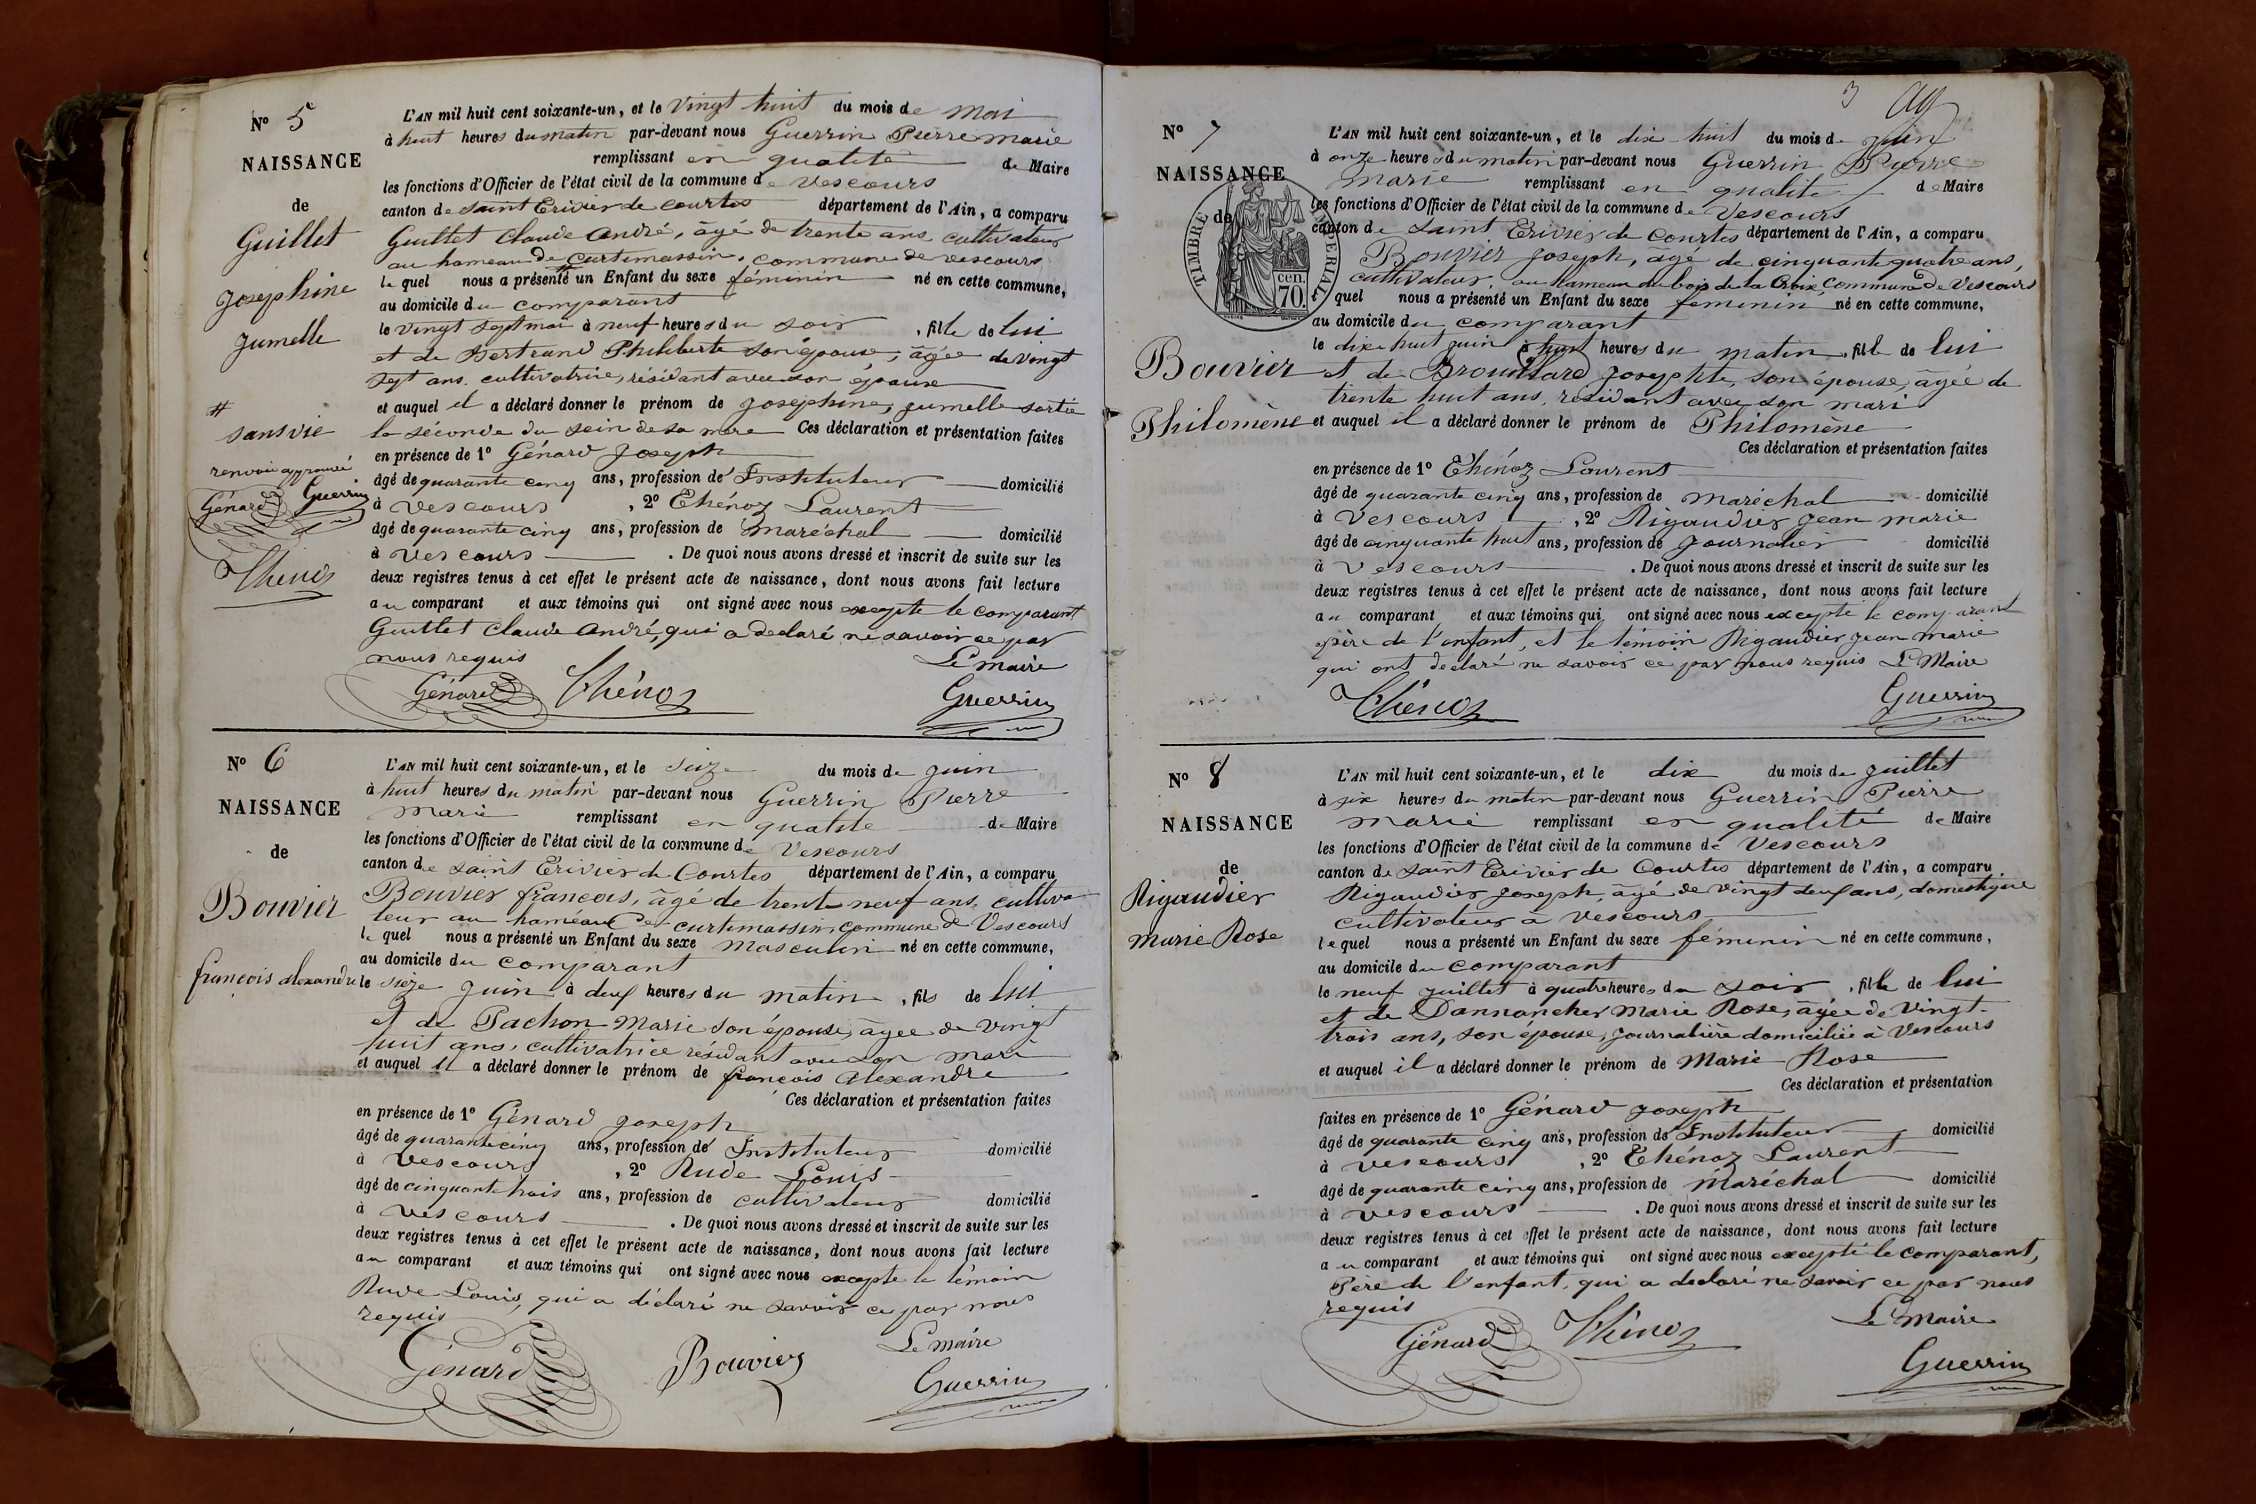 N° 5
NAISSANCE
de
Guillet
Josephine
Jumelle
#
sans vie
renvoi approuvé
Génard Guerrin
Thénoz
L'AN mil huit cent soixante-un, et le vingt huit du mois de mai
à huit heures du matin par-devant nous Guerrin Pierre marie
remplissant en qualité de Maire
les fonctions d'Officier de l'état civil de la commune de Vescours
canton de saint Trivier de Courtes département de l'Ain, a comparu
Guillet Claude André, âgé de trente ans cultivateur
au hameau de Curtimassin, commune de Vescours
le quel nous a présenté # un Enfant du sexe féminin né en cette commune,
au domicile du comparant
le vingt sept mai à neuf heures du soir, fille de lui
et de Bertrand Philiberte son épouse, âgée de vingt
sept ans cultivatrice, résidant avec son épouse
et auquel il a déclaré donner le prénom de Josephine, jumelle sortie
la séconde du sein de sa mère Ces déclaration et présentation faites
en présence de 1° Génard Joseph
âgé de quarante cinq ans, profession d'Instituteur domicilié
à Vescours, 2° Thénoz Laurent
âgé de quarante cinq ans, profession de maréchal domicilié
à Vescours. De quoi nous avons dressé et inscrit de suite sur les
deux registres tenus à cet effet le présent acte de naissance, dont nous avons fait lecture
au comparant et aux témoins qui ont signé avec nous excepté le comparant
Guillet Claude André, qui a declaré ne savoir ce par
nous requis Le maire
Génard Thénoz Guerrin
N° 6
NAISSANCE
de
Bouvier
françois alexandre
L'AN mil huit cent soixante-un, et le seize du mois de juin
à huit heures du matin par-devant nous Guerrin Pierre
Marie remplissant en qualité de Maire
les fonctions d'Officier de l'état civil de la commune de Vescours
canton de saint Trivier de Courtes département de l'Ain, a comparu
Bouvier françois, âgé de trente neuf ans, cultiva-
teur au haméau de curtimassin, commune de Vescours
le quel nous a présenté un Enfant du sexe Masculin né en cette commune,
au domicile du comparant
le sieze juin à deux heures du matin, fils de lui
et de Pachon Marie son épouse, âgée de vingt
huit ans, cultivatrice résidant avec son mari
et auquel il a déclaré donner le prénom de françois Alexandre
Ces déclaration et présentation faites
en présence de 1° Génard Joseph
âgé de quarante cinq ans, profession d'Instituteur domicilié
à Vescours, 2° Rude Louis
âgé de cinquante trois ans, profession de cultivateur domicilié
à Vescours. De quoi nous avons dressé et inscrit de suite sur les
deux registres tenus à cet effet le présent acte de naissance, dont nous avons fait lecture
au comparant et aux témoins qui ont signé avec nous excepté le témoin
Rude Louis, qui a déclaré ne savoir ce par nous
requis
Le maire
Génard Bouvier Guerrin
3
N° 7
NAISSANCE
de
TIMBRE IMPERIAL
cen.
70.
Bouvier
Philomène
L'AN mil huit cent soixante-un, et le dix huit du mois de juin
à onze heures du matin par-devant nous Guerrin Pierre
marie remplissant en qualité de Maire
les fonctions d'Officier de l'état civil de la commune de Vescours
canton de saint Trivier de Courtes département de l'Ain, a comparu
Bouvier Joseph, âgé de cinquante quatre ans,
cultivateur, au hameau du bois de la Croix, Commune de Vescours
quel nous a présenté un Enfant du sexe féminin né en cette commune,
au domicile du comparant
le dix huit juin à huit heures du matin, fille de lui
et de Brouillard Josephte, son épouse, âgée de
trente huit ans, résidant avec son mari
et auquel il a déclaré donner le prénom de Philomène
Ces déclaration et présentation faites
en présence de 1° Thénoz Laurent
âgé de quarante cinq ans, profession de maréchal domicilié
à Vescours, 2° Rigaudier Jean marie
âgé de cinquante huit ans, profession de Journalier domicilié
à Vescours. De quoi nous avons dressé et inscrit de suite sur les
deux registres tenus à cet effet le présent acte de naissance, dont nous avons fait lecture
au comparant et aux témoins qui ont signé avec nous excepté le comparant
père de l'enfant, et le témoin Rigaudier Jean marie
qui ont declaré ne savoir ce par nous requis Le Maire
Thénoz Guerrin
N° 8
NAISSANCE
de
Rigaudier
Marie Rose
L'AN mil huit cent soixante-un, et le dix du mois de juillet
à six heures du matin par-devant nous Guerrin Pierre
marie remplissant en qualité de Maire
les fonctions d'Officier de l'état civil de la commune de Vescours
canton de saint Trivier de Courtes département de l'Ain, a comparu
Rigaudier Joseph, âgé de vingt deux ans, domestique
cultivateur à Vescours
lequel nous a présenté un Enfant du sexe féminin né en cette commune,
au domicile du comparant
le neuf juillet à quatre heures du soir, fille de lui
et de Dannancher Marie Rose, âgée de vingt
trois ans, son épouse, journalière domiciliée à Vescours
et auquel il a déclaré donner le prénom de Marie Rose
Ces déclaration et présentation
faites en présence de 1° Génard Joseph
âgé de quarante cinq ans, profession d'Instituteur domicilié
à Vescours, 2° Thénoz Laurent
âgé de quarante cinq ans, profession de Maréchal domicilié
à Vescours. De quoi nous avons dressé et inscrit de suite sur les
deux registres tenus à cet effet le présent acte de naissance, dont nous avons fait lecture
au comparant et aux témoins qui ont signé avec nous excepté le comparant,
Père de l'enfant, qui a declaré ne savoir ce par nous
requis
Le maire
Génard Thénoz Guerrin